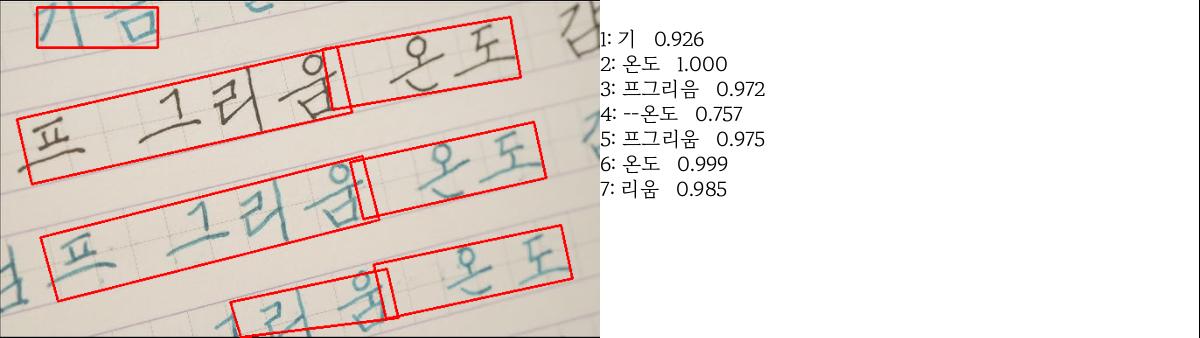 프 그리움 온도
프 그리움 온도
리움 온도
1: 기 0.926
2: 온도 1.000
3: 프그리움 0.972
4: --온도 0.757
5: 프그리움 0.975
6: 온도 0.999
7: 리움 0.985